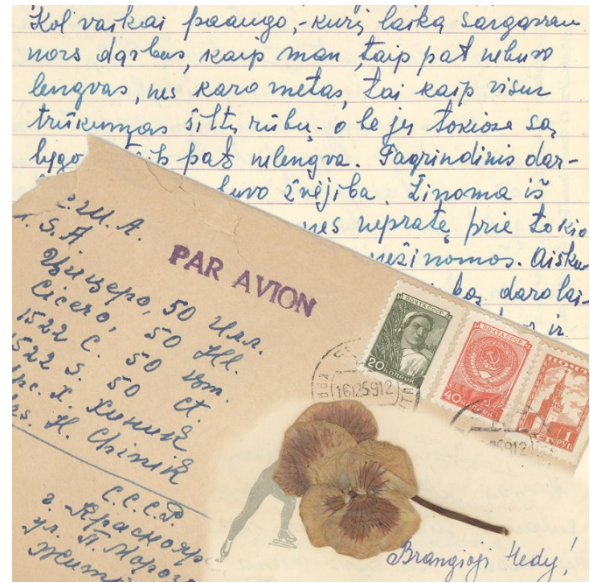 Kol vaikai paaugo, - kurį laiką
nors darbas, kaip man, taip pat nebuvo
lengvas, nes karo metas, tai kaip visur
trūkumas šiltų rūbų - o be jų tokiose są
lygo pat nelengva. Pagrindinis dar-
buvo žvėjiba. Žinoma iš
nes nepratę prie tokio
nežinomos. Aišku
lai-
ir
Ш.А.
S.A
PAR AVION
Цицеро, 50 Илл.
Cicero, 50 Ill.
1522 С. 50
1522 S. 50 Ct.
H. Chinik
С.С.С.Р.
г. Краснояр
ул. П.
ПОЧТА СССР
20
ПОЧТА СССР
40
1
Brangioji Hedy!